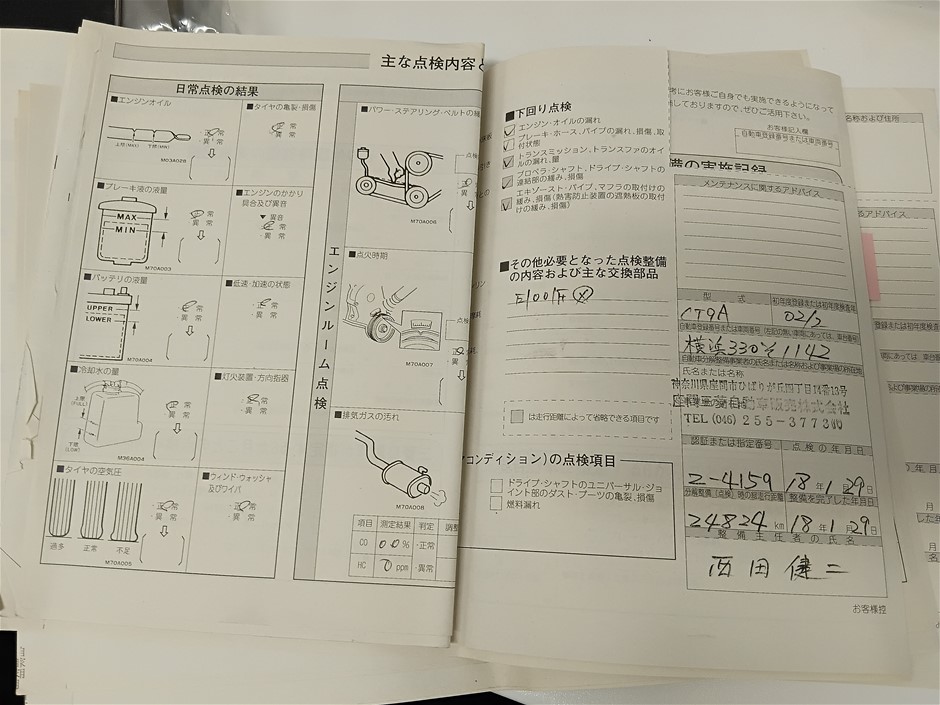 主な点検内容と
日常点検の結果
■エンジンオイル
上限(MAX) 下限(MIN)
M03A028
正常
・異常
■タイヤの亀裂・損傷
正常
・異常
■ブレーキ液の液量
MAX
MIN
M70A003
正常
・異常
■エンジンのかかり
具合及び異音
▼異音
正常
・異常
■バッテリの液量
UPPER
LOWER
M70A004
正常
・異常
■低速・加速の状態
正常
・異常
■冷却水の量
上限
(FULL)
下限
(LOW)
M36A004
正常
・異常
■灯火装置・方向指器
正常
・異常
■タイヤの空気圧
過多 正常 不足
M70A005
正常
・異常
■ウィンド・ウォッシャ
及びワイパ
正常
・異常
エンジンルーム点検
■パワー・ステアリング・ベルトの
M70A006
・点検
正
異
■点火時期
M70A007
・点検
正
異
■排気ガスの汚れ
M70A008
項目 測定結果 判定 調整
CO 0.0 % ・正常
HC 0 ppm ・異常
■下回り点検
エンジン・オイルの漏れ
ブレーキ・ホース、パイプの漏れ、損傷、取
付状態
トランスミッション、トランスファのオイ
ルの漏れ、量
プロペラ・シャフト、ドライブ・シャフトの
連結部の緩み、損傷
エキゾースト・パイプ、マフラの取付けの
緩み、損傷(熱害防止装置の遮熱板の取付
けの緩み、損傷)
■その他必要となった点検整備
の内容および主な交換部品
は走行距離によって省略できる項目です
コンディション)の点検項目
ドライブ・シャフトのユニバーサル・ジョ
イント部のダスト・ブーツの亀裂、損傷
燃料漏れ
者にお客様ご自身でも実施できるようになって
しておりますので、ぜひご活用下さい。
お客様記入欄
自動車登録番号または車両番号
備の実施記録
メンテナンスに関するアドバイス
型式 初年度登録または初年度検査年
CT9A 02/2
横浜330そ1142
自動車分解整備事業者の氏名または名称および事業場の所在地
氏名または名称
神奈川県座間市ひばりが丘四丁目14番13号
座間三菱自動車販売株式会社
TEL (046) 255-3773
認証または指定番号 点検の年月日
2-4159 18年1月29日
分解整備(点検)時の総走行距離 整備を完了した年月日
24824 km 18年1月29日
整備主任者の氏名
西田健二
お客様控
名称および住所
るアドバイス